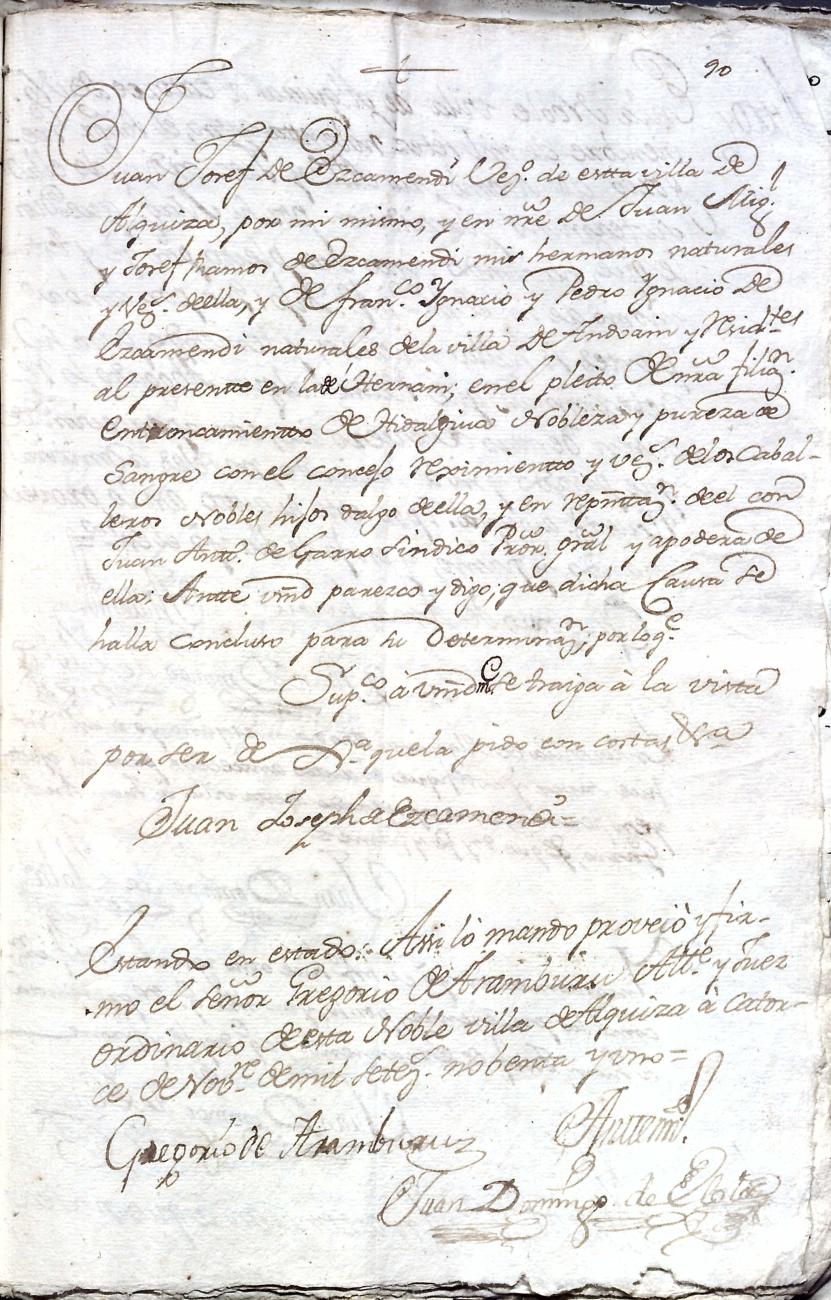 90
Juan Josef de Ezcamendi Vez.º de estta villa De
Alquiza, por mi mismo, y en nre De Juan Mig.l
y Josef Ramos de Ezcamendi mis hermanos naturales
y Vez.s de ella, y De fran.co Ygnacio y Pedro Ygnacio De
Ezcamendi naturales de la villa De Andoain y Resid.tes
al presentte en la de Hernani; en el pleito De nrã filiaz.n
enttroncamientto de Hidalguia Nobleza y pureza de
Sangre con el concejo Reximientto y vez.s de los Cabal-
leros Nobles hijos dalgo de ella, y en repnttaz.n de el con
Juan Antt.º de Garro Sindico Prõr. grãl y apoderã de
ella: Antte vmd parezco y digo; que dicha Causa se
halla concluso para su Determinaz.n; por lo q.e
Sup.co à vmd se traiga à la vista
por ser de Jus.a que la pido con costas &.a
Juan Joseph de Ezcamendi=
Estando en estado: Assi lo mando proveió y fir-
mo el señor Gregorio de Aramburu Altte. y Juez
ordinario de esta Noble villa de Alquiza à cator-
ce de Nob.re de mil setez.s nobenta y vno=
Gregorio de Aramburu
Antemi.
Juan Domingo de